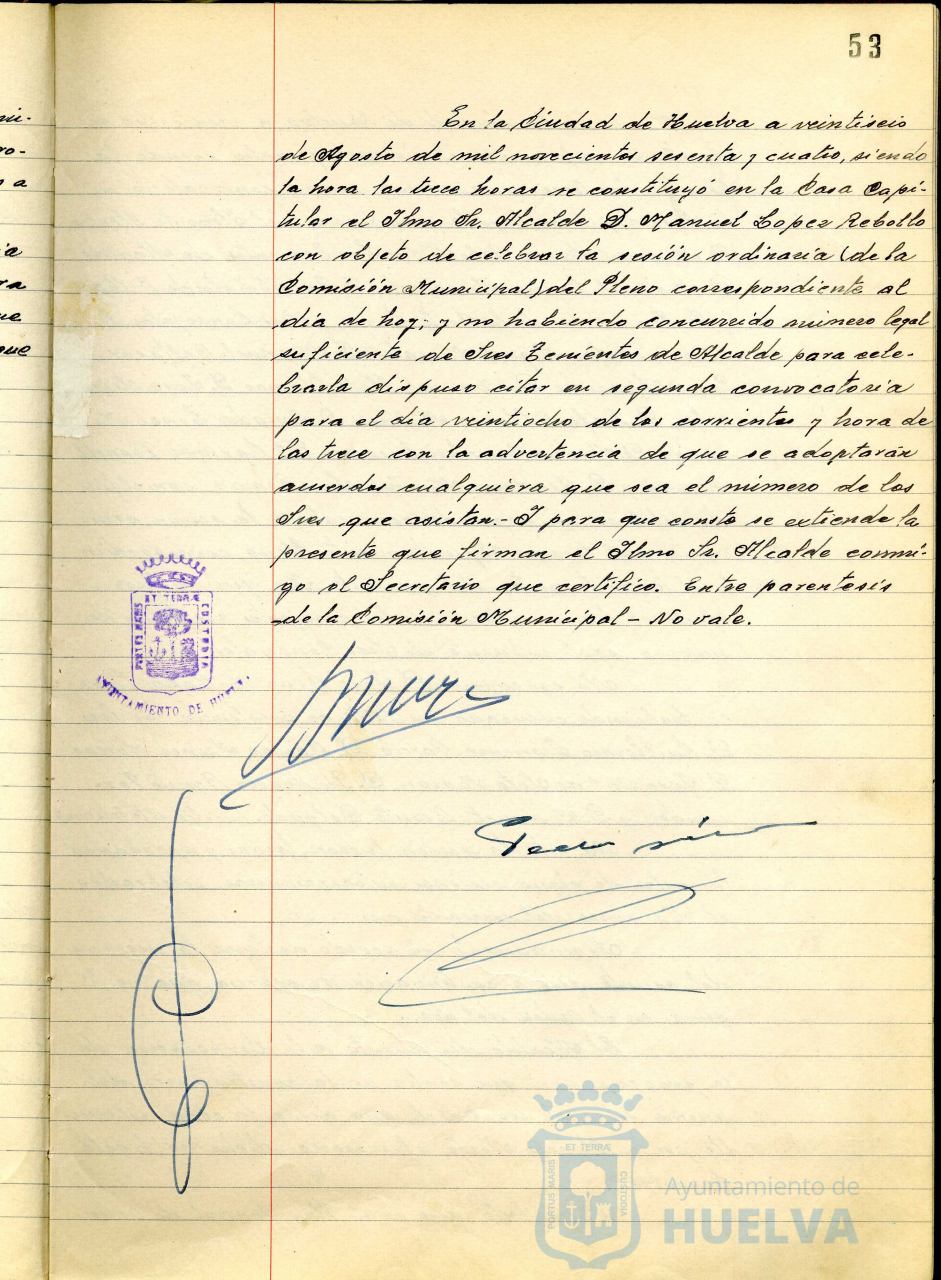 53
En la Ciudad de Huelva a veintiseis
de Agosto de mil novecientos sesenta y cuatro, siendo
la hora las trece horas se constituyó en la Casa Capi-
tular el Ilmo Sr. Alcalde D. Manuel Lopez Rebollo
con objeto de celebrar la sesión ordinaria (de la
Comisión Municipal) del Pleno correspondiente al
día de hoy; y no habiendo concurrido número legal
suficiente de Sres Tenientes de Alcalde para cele-
brarla dispuso citar en segunda convocatoria
para el día veintiocho de los corrientes y hora de
las trece con la advertencia de que se adoptarán
acuerdos cualquiera que sea el número de los
Sres que asistan.- Y para que conste se extiende la
presente que firman el Ilmo Sr. Alcalde conmi-
go el Secretario que certifico. Entre parentesis
de la Comisión Municipal - No vale.
PORTUS MARIS ET TERRÆ CUSTODIA
AYUNTAMIENTO DE HUELVA
PORTUS MARIS ET TERRÆ CUSTODIA
Ayuntamiento de
HUELVA